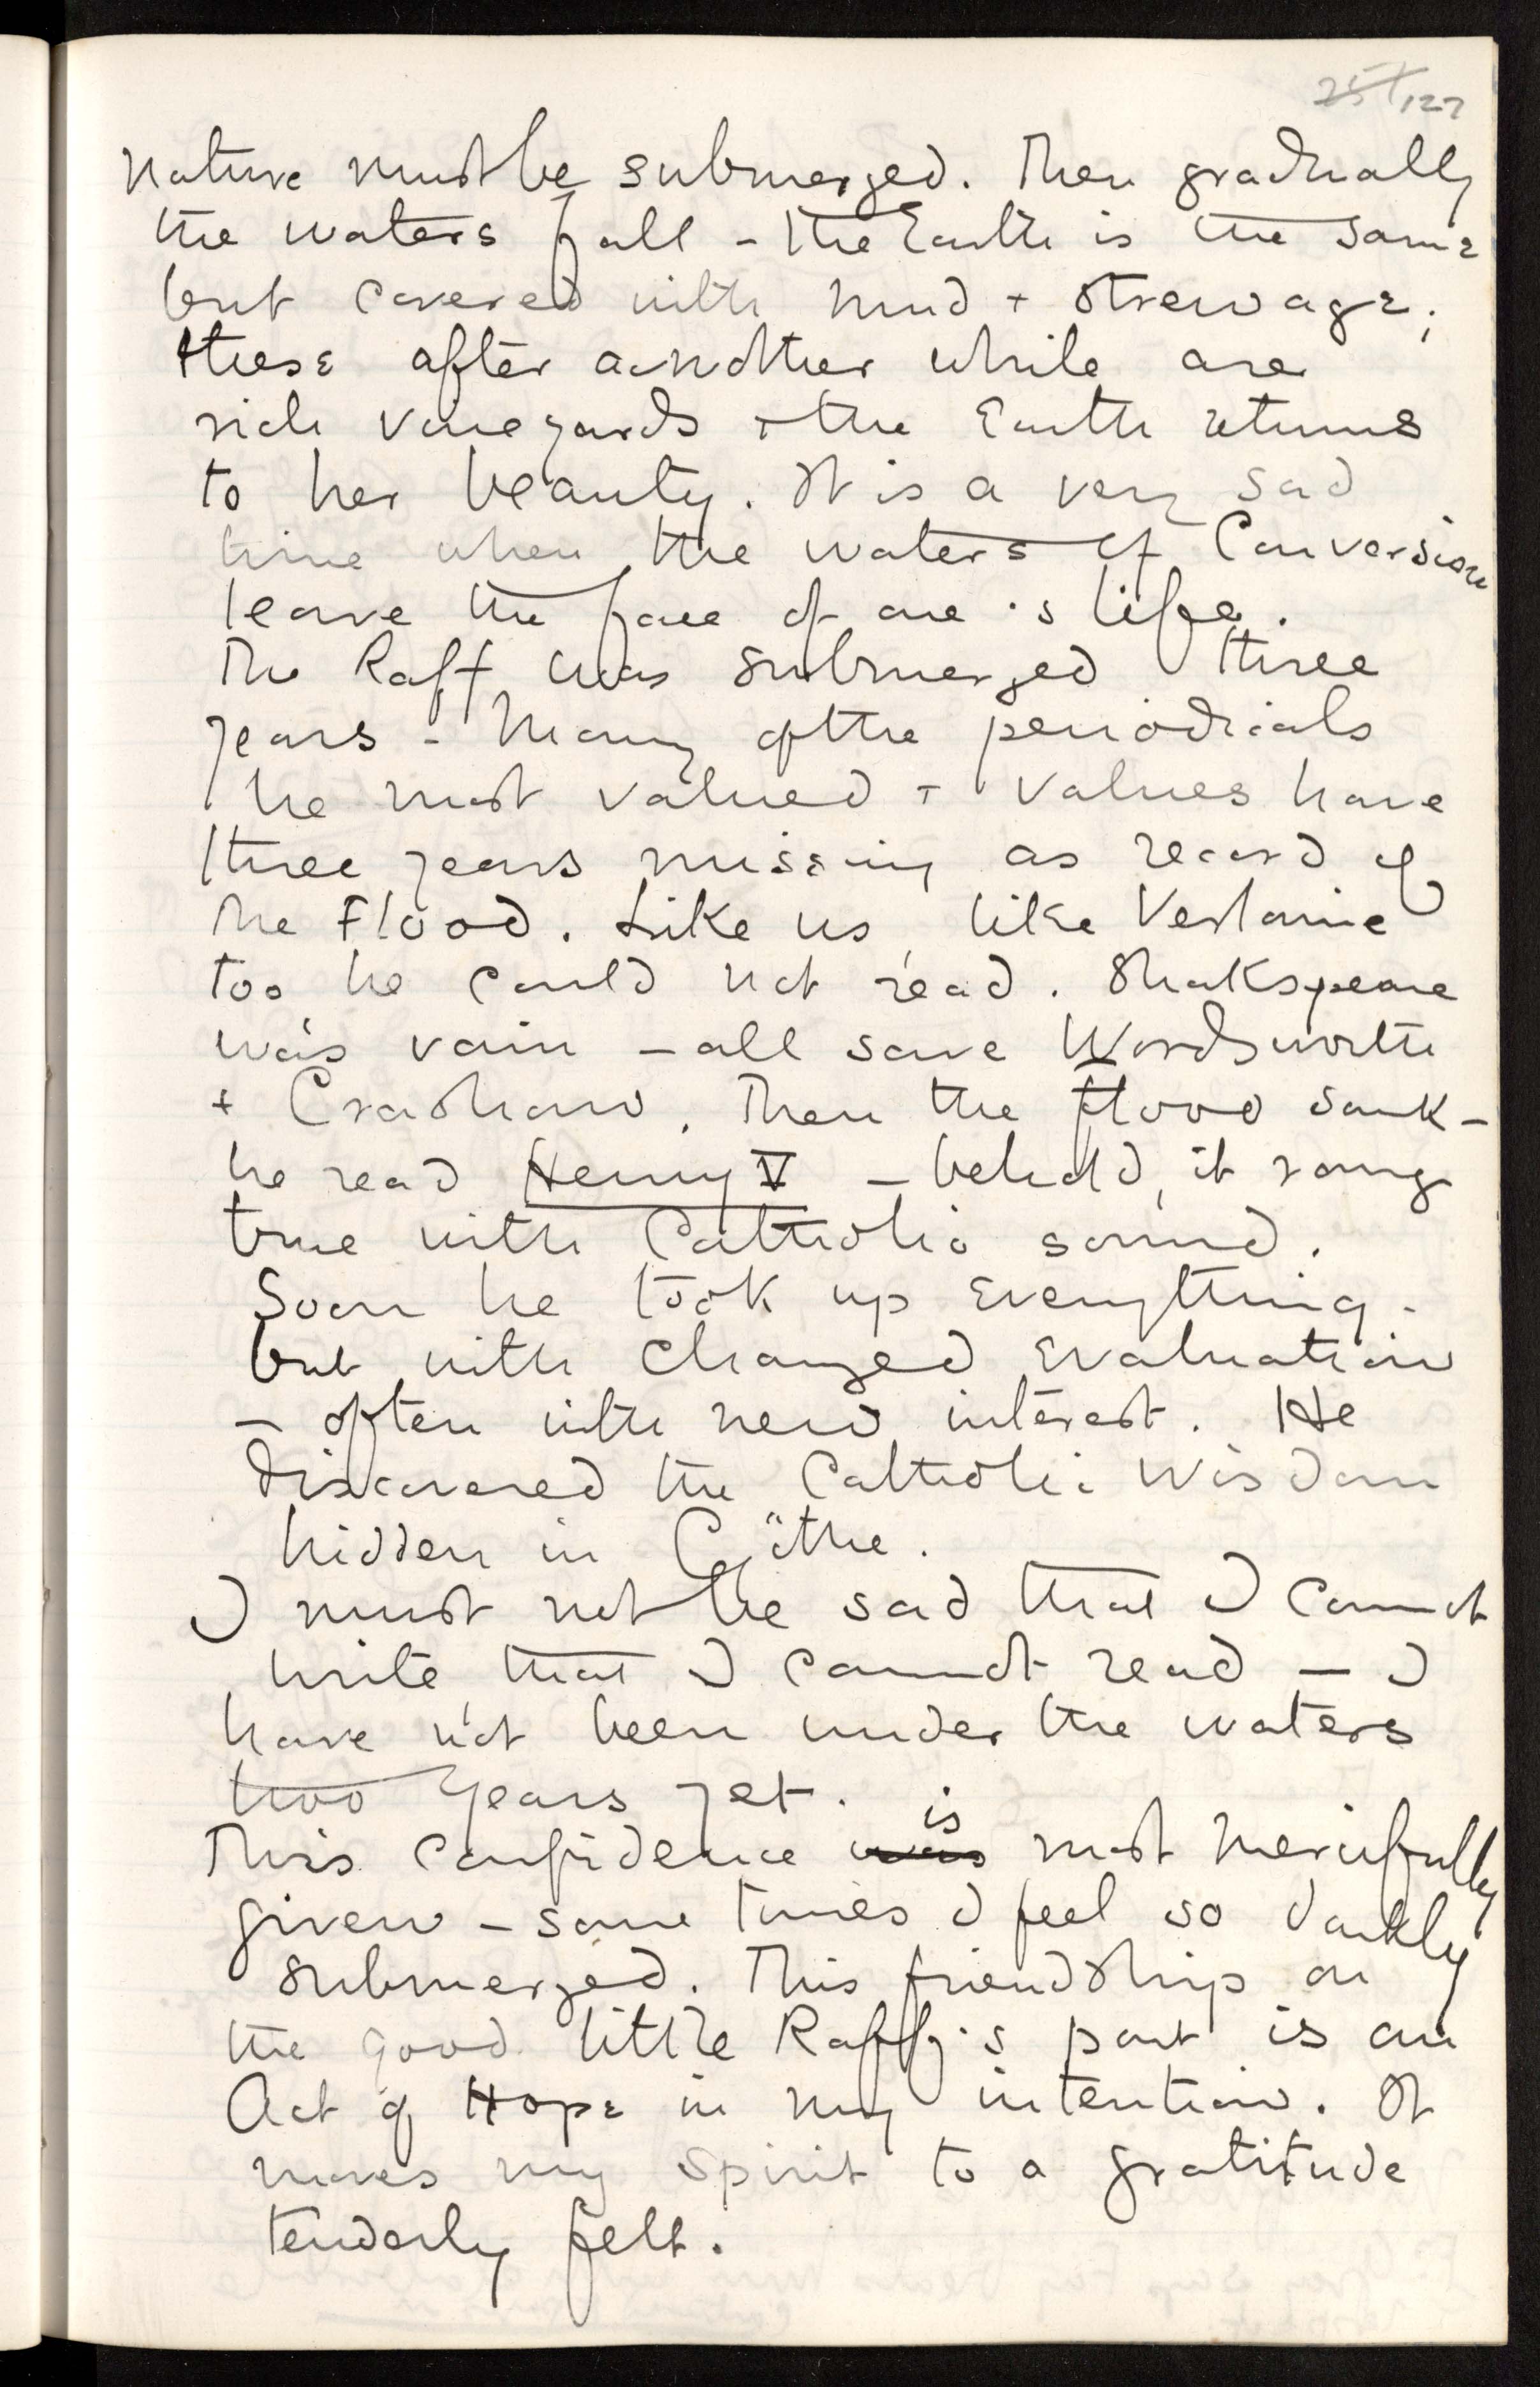 127
nature must be submerged. Then gradually
the waters fall – the Earth is the same
but covered with mud + strewage;
these after another while are
rich vineyards + the Earth returns
to her beauty. It is a very sad
time when the waters of Conversion
leave the face of one's life.
The Raft was submerged three
years – Many of the periodicals
he most valued + values have
three years missing as record of
the Flood. Like us, like Verlaine
too he could not read. Shakspeare
was vain – all save Wordsworth
+ Crashaw. Then the flood sank –
he read Henry V – behold, it rang
true with Catholic sound.
Soon he took up everything –
but with changed evaluation
– often with new interest. He
discovered the Catholic Wisdom
hidden in Göthe.
I must not be sad that I cannot
write, that I cannot read – I
have not been under the waters
two years yet.
This confidence was is most mercifully
given – some times I feel so darkly
submerged. This friendship on
the good little Raffy's part is an
Act of Hope in my intention. It
moves my spirit to a gratitude
tenderly felt.